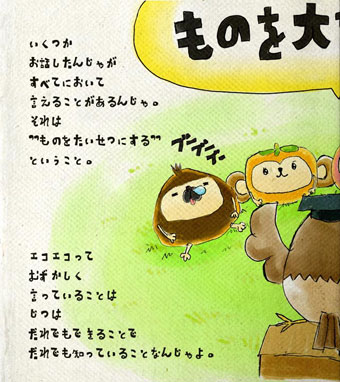 ものを大
いくつか
お話したんじゃが
すべてにおいて
言えることがあるんじゃ。
それは
"ものをたいせつにする"
ということ。
ズンズンズン
エコエコって
むずかしく
言っていることは
じつは
だれでもできることで
だれでも知っていることなんじゃよ。